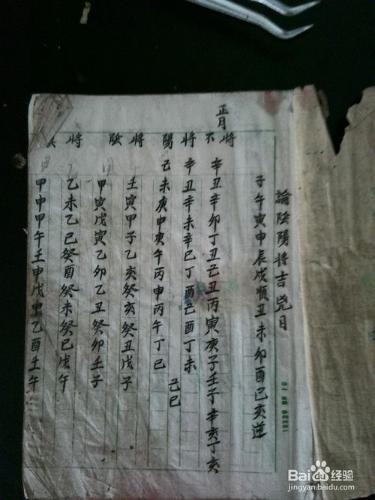 論陰陽將吉凶日
子午寅申辰戌順丑未卯酉巳亥逆
正月
不將
辛丑辛卯丁丑己丑丙寅庚子壬子辛亥丁亥
陽將
辛丑辛未辛巳丁酉己酉丁未
己巳
己未庚申庚午丙申丙午丁巳
將
壬寅甲子乙亥癸亥癸丑戊子
陰將
甲寅戊寅乙卯乙丑癸卯壬子
乙未乙巳癸酉癸未癸巳戊午
甲申甲午壬申戊申乙酉壬午
Bai 百度经验
jingyan.baidu.com